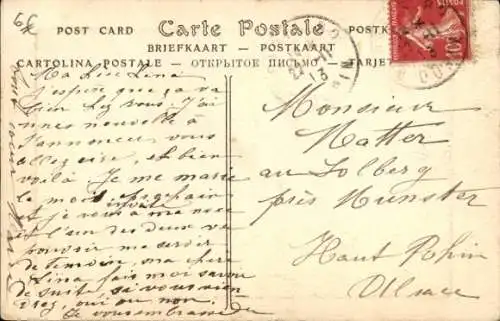 POST CARD Carte Postale POSTK
BRIEFKAART — POSTKAART
CARTOLINA POSTALE — ОТКРЫТОЕ ПИСЬМО — TARJET
Ma Lina
J'espère que ça va
bien chez vous. J'ai
unes nouvelle à
t'annoncer, vous
allez rire, et bien
voilà Je me marie
le mois prochain
et je vous à ma noce
invite
et l'un des deux va
pouvoir me servir
de temoire, ma chere
Lina fais moi savoir
de suite si vous vien
drez, oui ou non.
Je vous embrasse de
Monsieur
Matter
au Solberg
près Munster
Haut Rhin
Alsace